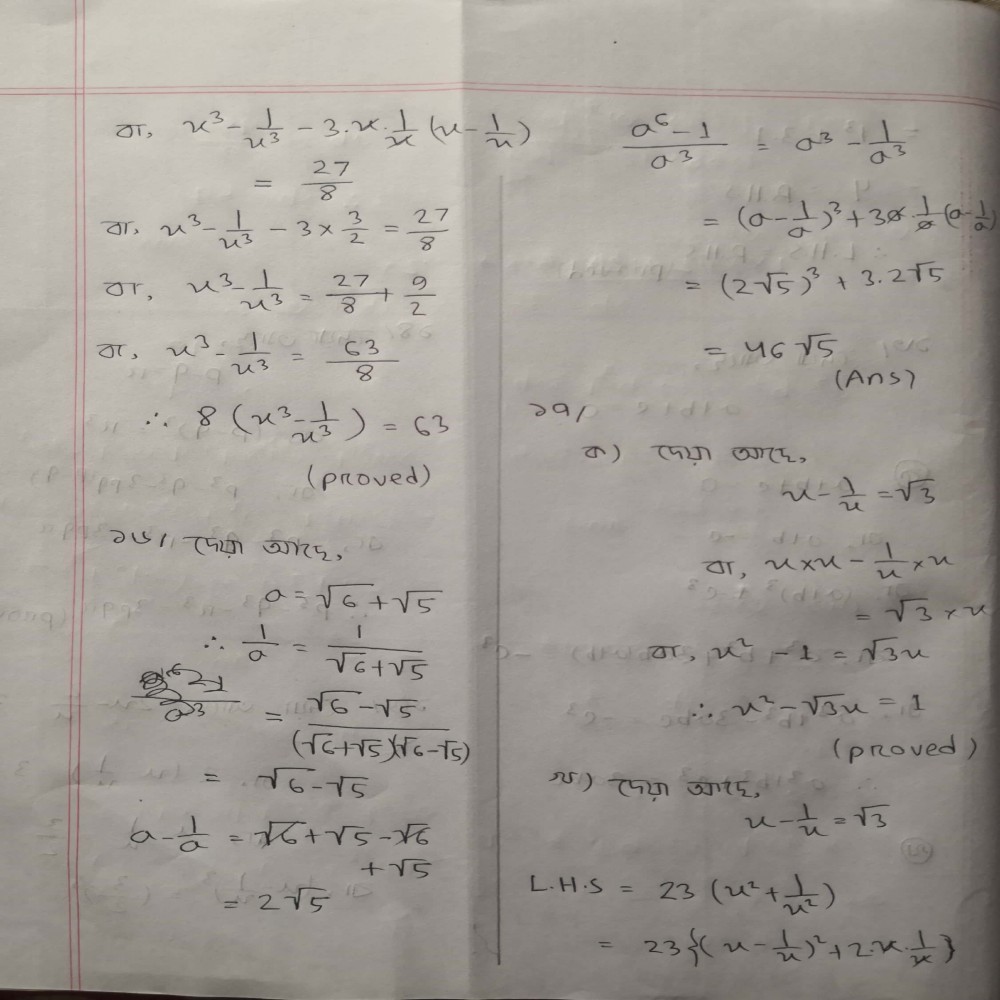 বা, x³ - 1/x³ - 3.x.1/x (x - 1/x)
= 27/8
বা, x³ - 1/x³ - 3 × 3/2 = 27/8
বা, x³ - 1/x³ = 27/8 + 9/2
বা, x³ - 1/x³ = 63/8
∴ 8 (x³ - 1/x³) = 63
(proved)
১৬। দেয়া আছে,
a = √6 + √5
∴ 1/a = 1/(√6 + √5)
= (√6 - √5)/((√6+√5)(√6-√5))
= √6 - √5
a - 1/a = √6 + √5 - √6
+ √5
= 2√5
(a⁶ - 1)/a³ = a³ - 1/a³
= (a - 1/a)³ + 3a.1/a (a - 1/a)
= (2√5)³ + 3.2√5
= 46√5
(Ans)
১৭।
ক) দেয়া আছে,
x - 1/x = √3
বা, x×x - 1/x × x
= √3 × x
বা, x² - 1 = √3x
∴ x² - √3x = 1
(proved)
খ) দেয়া আছে,
x - 1/x = √3
L.H.S = 23 (x² + 1/x²)
= 23{(x - 1/x)² + 2.x.1/x}